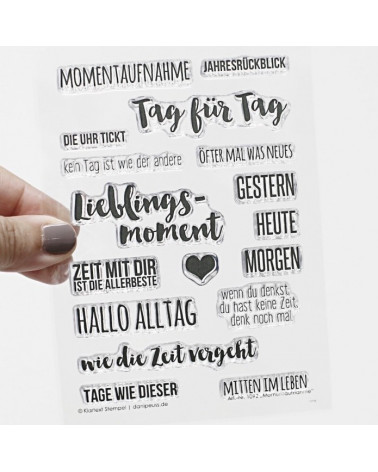 MOMENTAUFNAHME
JAHRESRÜCKBLICK
Tag für Tag
DIE UHR TICKT
kein Tag ist wie der andere
ÖFTER MAL WAS NEUES
GESTERN
Lieblings-
moment
HEUTE
MORGEN
ZEIT MIT DIR
IST DIE ALLERBESTE
wenn du denkst,
du hast keine Zeit,
denk noch mal
HALLO ALLTAG
wie die Zeit vergeht
TAGE WIE DIESER
MITTEN IM LEBEN
© Klartext Stempel | danipeuss.de